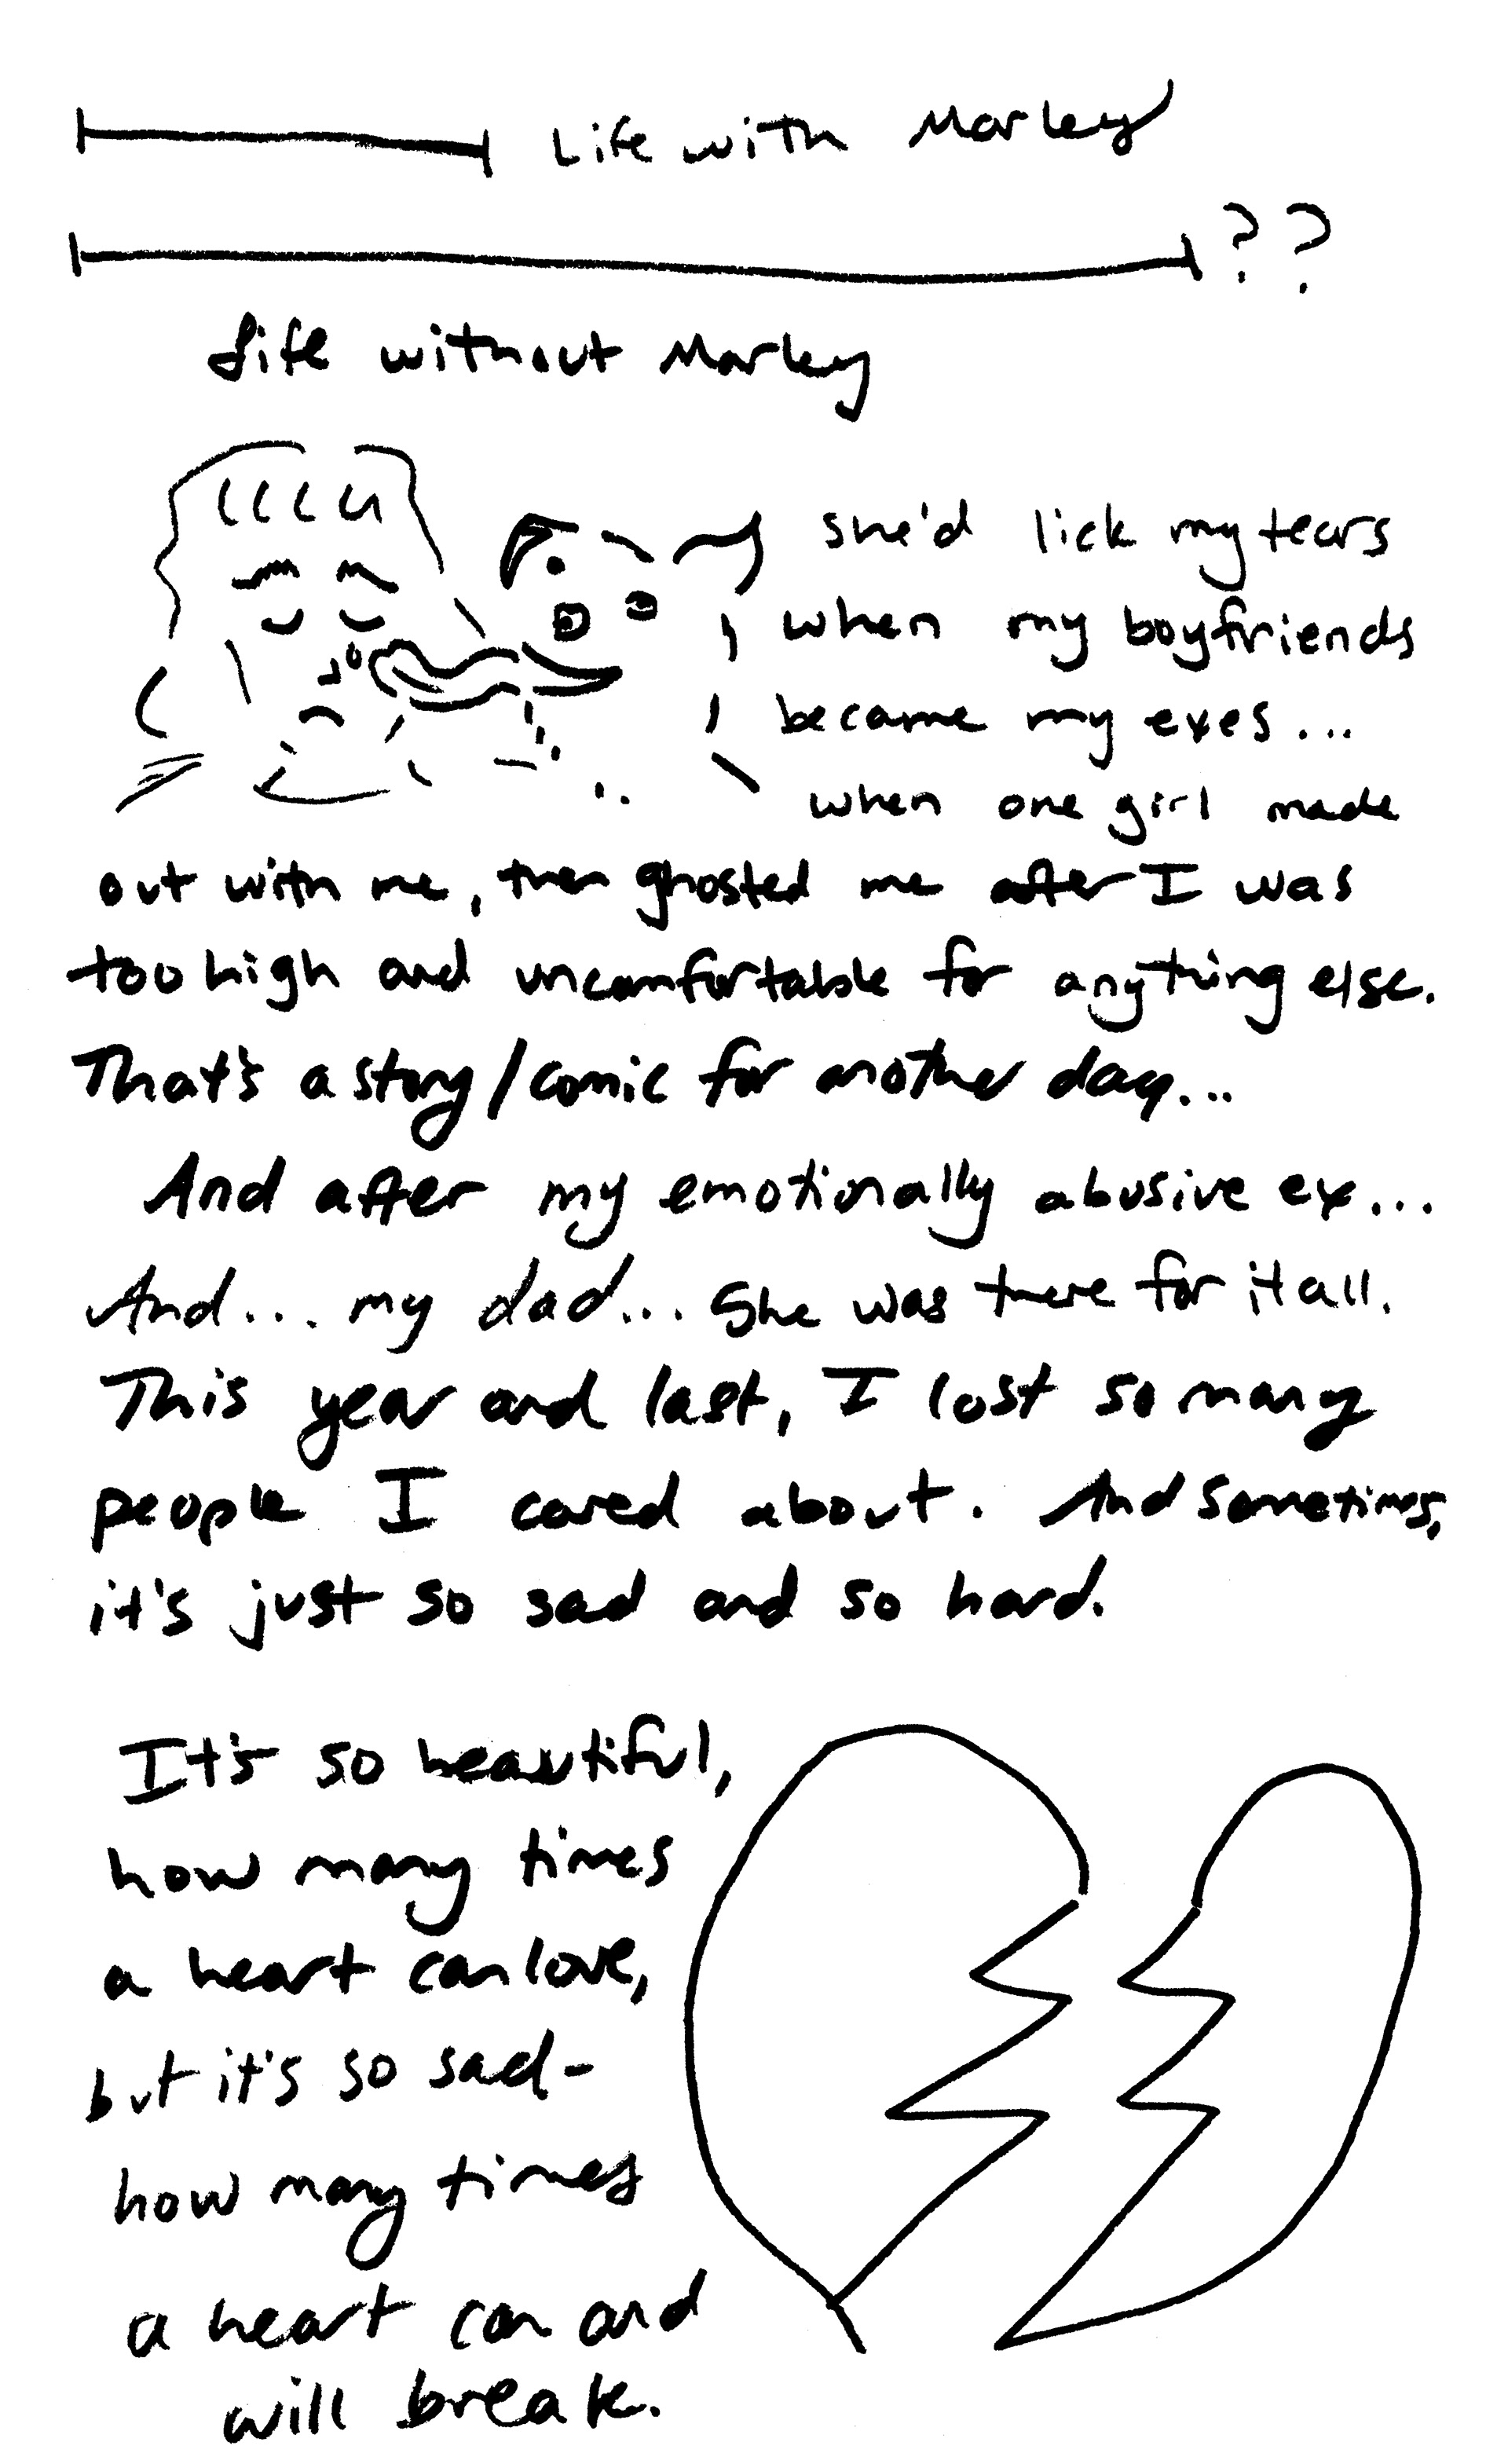 Life with Marley
??
Life without Marley
she'd lick my tears
when my boyfriends
became my exes...
when one girl made
out with me, then ghosted me after I was
too high and uncomfortable for anything else.
That's a story/comic for another day...
And after my emotionally abusive ex...
And... my dad... She was there for it all.
This year and last, I lost so many
people I cared about. And sometimes,
it's just so sad and so hard.
It's so beautiful,
how many times
a heart can love,
but it's so sad-
how many times
a heart can and
will break.